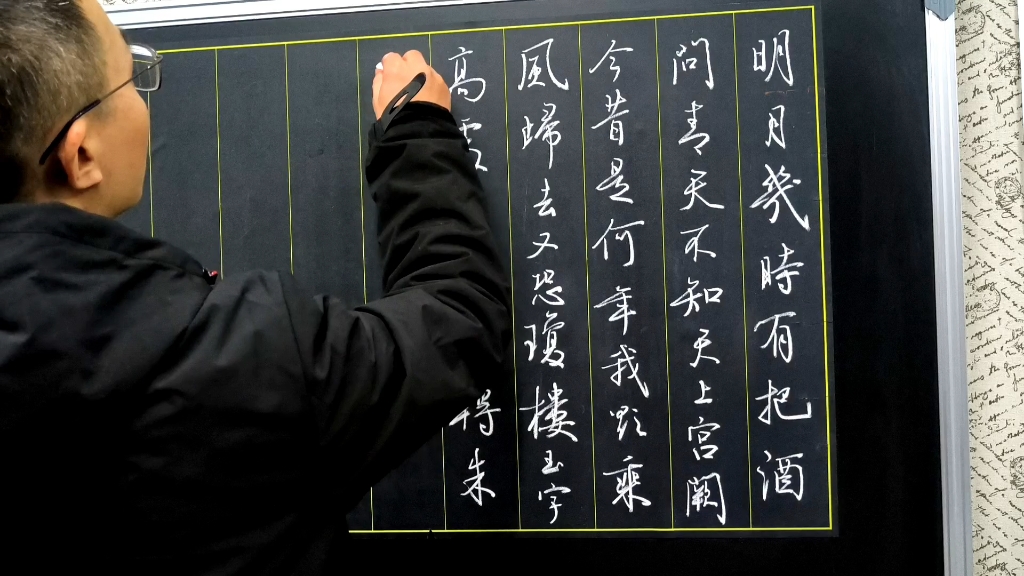 明月幾時有把酒
問青天不知天上宮闕
今昔是何年我欲乘
風歸去又恐瓊樓玉宇
高朱